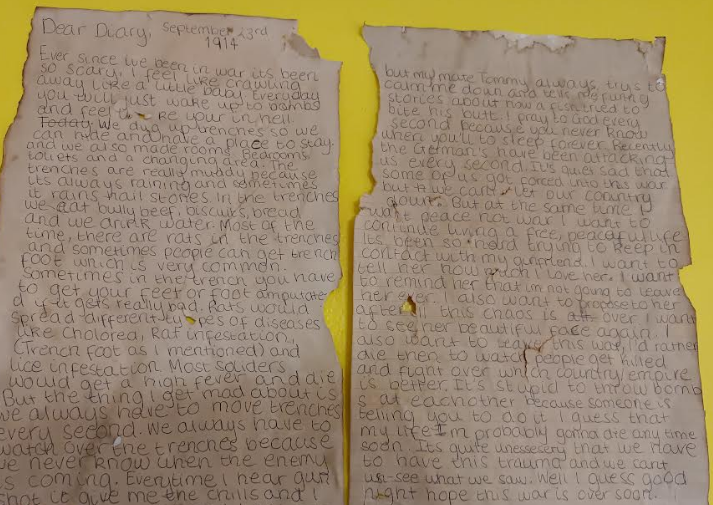 Dear Diary, September 23rd
1914
Ever since we been in war its been
so scary. I feel like crawling
away like a little baby. Everyday
you will just wake up to bombs
and feel re your in hell.
Today We dug up trenches so we
can hide and have a place to stay.
and we also made rooms Bedrooms
toliets and a changing area. The
trenches are really muddy because
its always raining and sometimes
it rains hail stones. In the trenches
we eat bully beef, biscuits, bread
and we drink water. Most of the
time, there are rats in the trenches
and sometimes people can get trench
foot which is very common.
Sometimes in the trench you have
to get your feet or foot amputate
d if it gets really bad. Rats would
spread different ty pes of diseases
like Cholorea, Rat infestation,
(Trench foot as I mentioned) and
lice infestation. Most soliders
would get a high fever and die
But the thing get mad about is
we always have to move trenches
every second. We always have to
watch over the trenches because
we never know when the enemy
is coming. Everytime I hear gun
shot it give me the chills and I
but my mate Tommy always trys to
calm me down and tell me funny
stories about how a fish tried to
bite his butt. I pray to God every
second because you never know
when you'll to sleep forever. Recently
the German's have been attacking
us every second. It's quiet sad that
some of us got forced into this war
but we cant let our country
down. But at the same time I
want peace not war. I want to
continue living a free, peaceful life
Its been so hard trying to keep in
contact with my girlfriend. I want to
tell her how much I love her. I want
to remind her that im not going to leave
her ever. I also want to propose to her
after all this chaos is over I want
to see her beautiful face again. I
also want to this way, I'd rather
die then to watch people get killed
and fight over which country/empire
is better. It's stupid to throw bomb
s at eachother because someone is
telling you to do it. I guess that
my life I'm probably gonna die any time
soon. Its quite unessecery that we have
to have this trauma and we cant
un-see what we saw. Well I guess good
night hope this war is over soon.